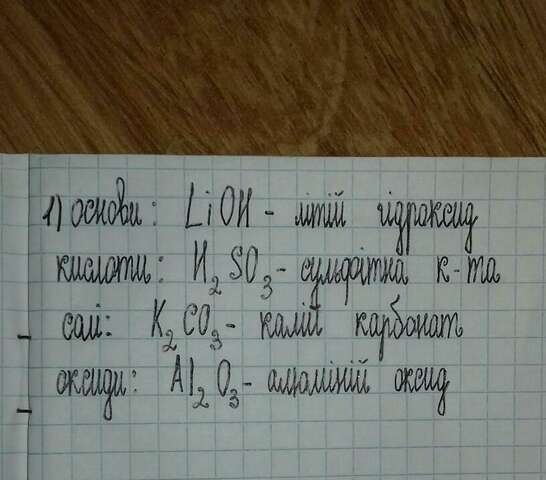 1) основи: LiOH - літій гідроксид
кислоти: H₂SO₃ - сульфітна к-та
солі: K₂CO₃ - калій карбонат
оксиди: Al₂O₃ - алюміній оксид